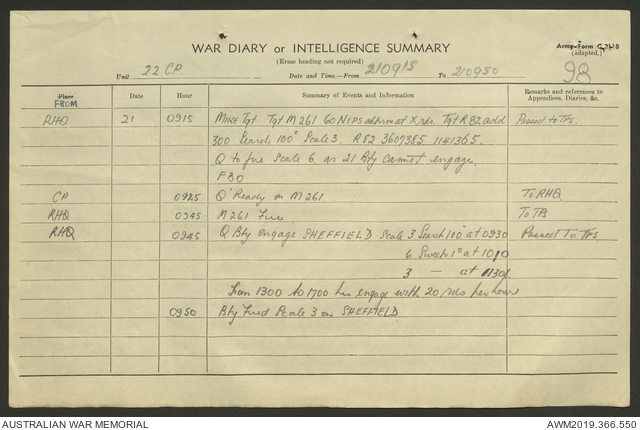 WAR DIARY or INTELLIGENCE SUMMARY
Army Form C2118
(adapted.)
(Erase heading not required)
98
Unit 22 CP. Date and Time.—From 210915 To 210950
Place Date Hour Summary of Events and Information Remarks and references to Appendices, Diaries, &c.
FROM
RHQ 21 0915 MIKE Tgt Tgt M261 60 NIPS at X rds. Tgt R82 add Passed to TPs.
300 Search 100° Scale 3. R82 3607385 1141365.
Q to fire Scale 6 as 21 Bty cannot engage.
FBO
CP 0925 Q' Ready on M261 To RHQ
RHQ 0945 M261 Fire To TPs
RHQ 0945 Q Bty engage SHEFFIELD Scale 3 Search 100° at 0930 Passed To TPs
6 Sweep 1° at 1010
3 — at 1130
From 1300 to 1700 hrs engage with 20 rds per hour
0950 Bty Fired Scale 3 on SHEFFIELD
AUSTRALIAN WAR MEMORIAL AWM2019.366.550